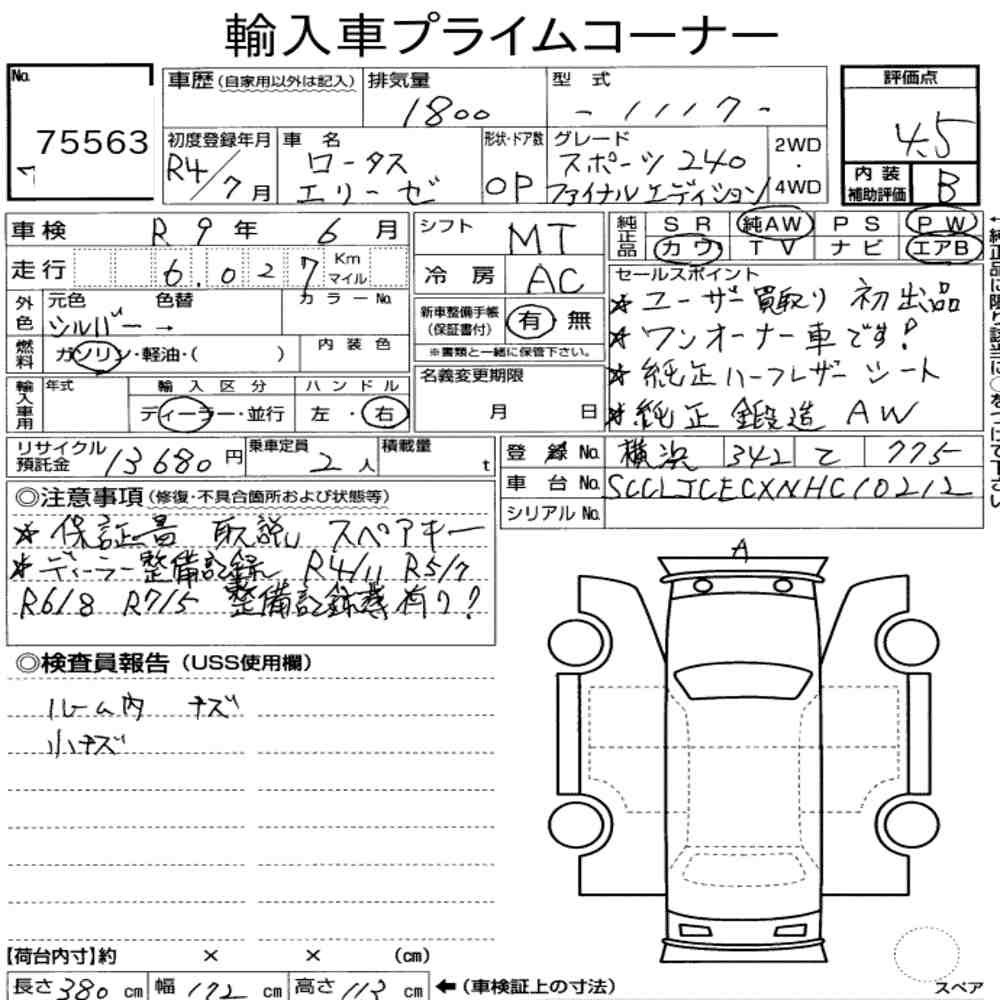 輸入車プライムコーナー
No.
75563
車歴(自家用以外は記入)
排気量
1800
型 式
- 1117 -
評価点
4.5
内 装
補助評価
B
初度登録年月
R4/7月
車 名
ロータス
エリーゼ
形状・ドア数
OP
グレード
スポーツ 240
ファイナルエディション
2WD
・
4WD
車検 R 9 年 6 月
シフト MT
純正品
SR 純AW PS PW
カワ TV ナビ エアB
走行 6.027 Km マイル
冷房 AC
外色
元色 色替 カラーNo.
シルバー→
新車整備手帳
(保証書付)
有 無
※書類と一緒に保管下さい。
燃料
ガソリン・軽油・( )
内装色
セールスポイント
★ユーザー買取り 初出品
★ワンオーナー車です!
★純正ハーフレザーシート
★純正 鍛造 AW
輸入車用
年式
輸入区分
ディーラー・並行
ハンドル
左・右
名義変更期限
月 日
リサイクル
預託金
13680円
乗車定員
2人
積載量
t
登録No. 横浜 342 て 775
車台No. SCCLJCECXNHC10212
シリアルNo.
◎注意事項(修復・不具合箇所および状態等)
★保証書 取説 スペアキー
★ディーラー整備記録 R4/11 R5/7
R6/8 R7/5 整備記録簿有り!
◎検査員報告(USS使用欄)
ルーム内 キズ
小キズ
A
スペア
【荷台内寸】約 × × (cm)
長さ380cm 幅172cm 高さ113cm ←(車検証上の寸法)